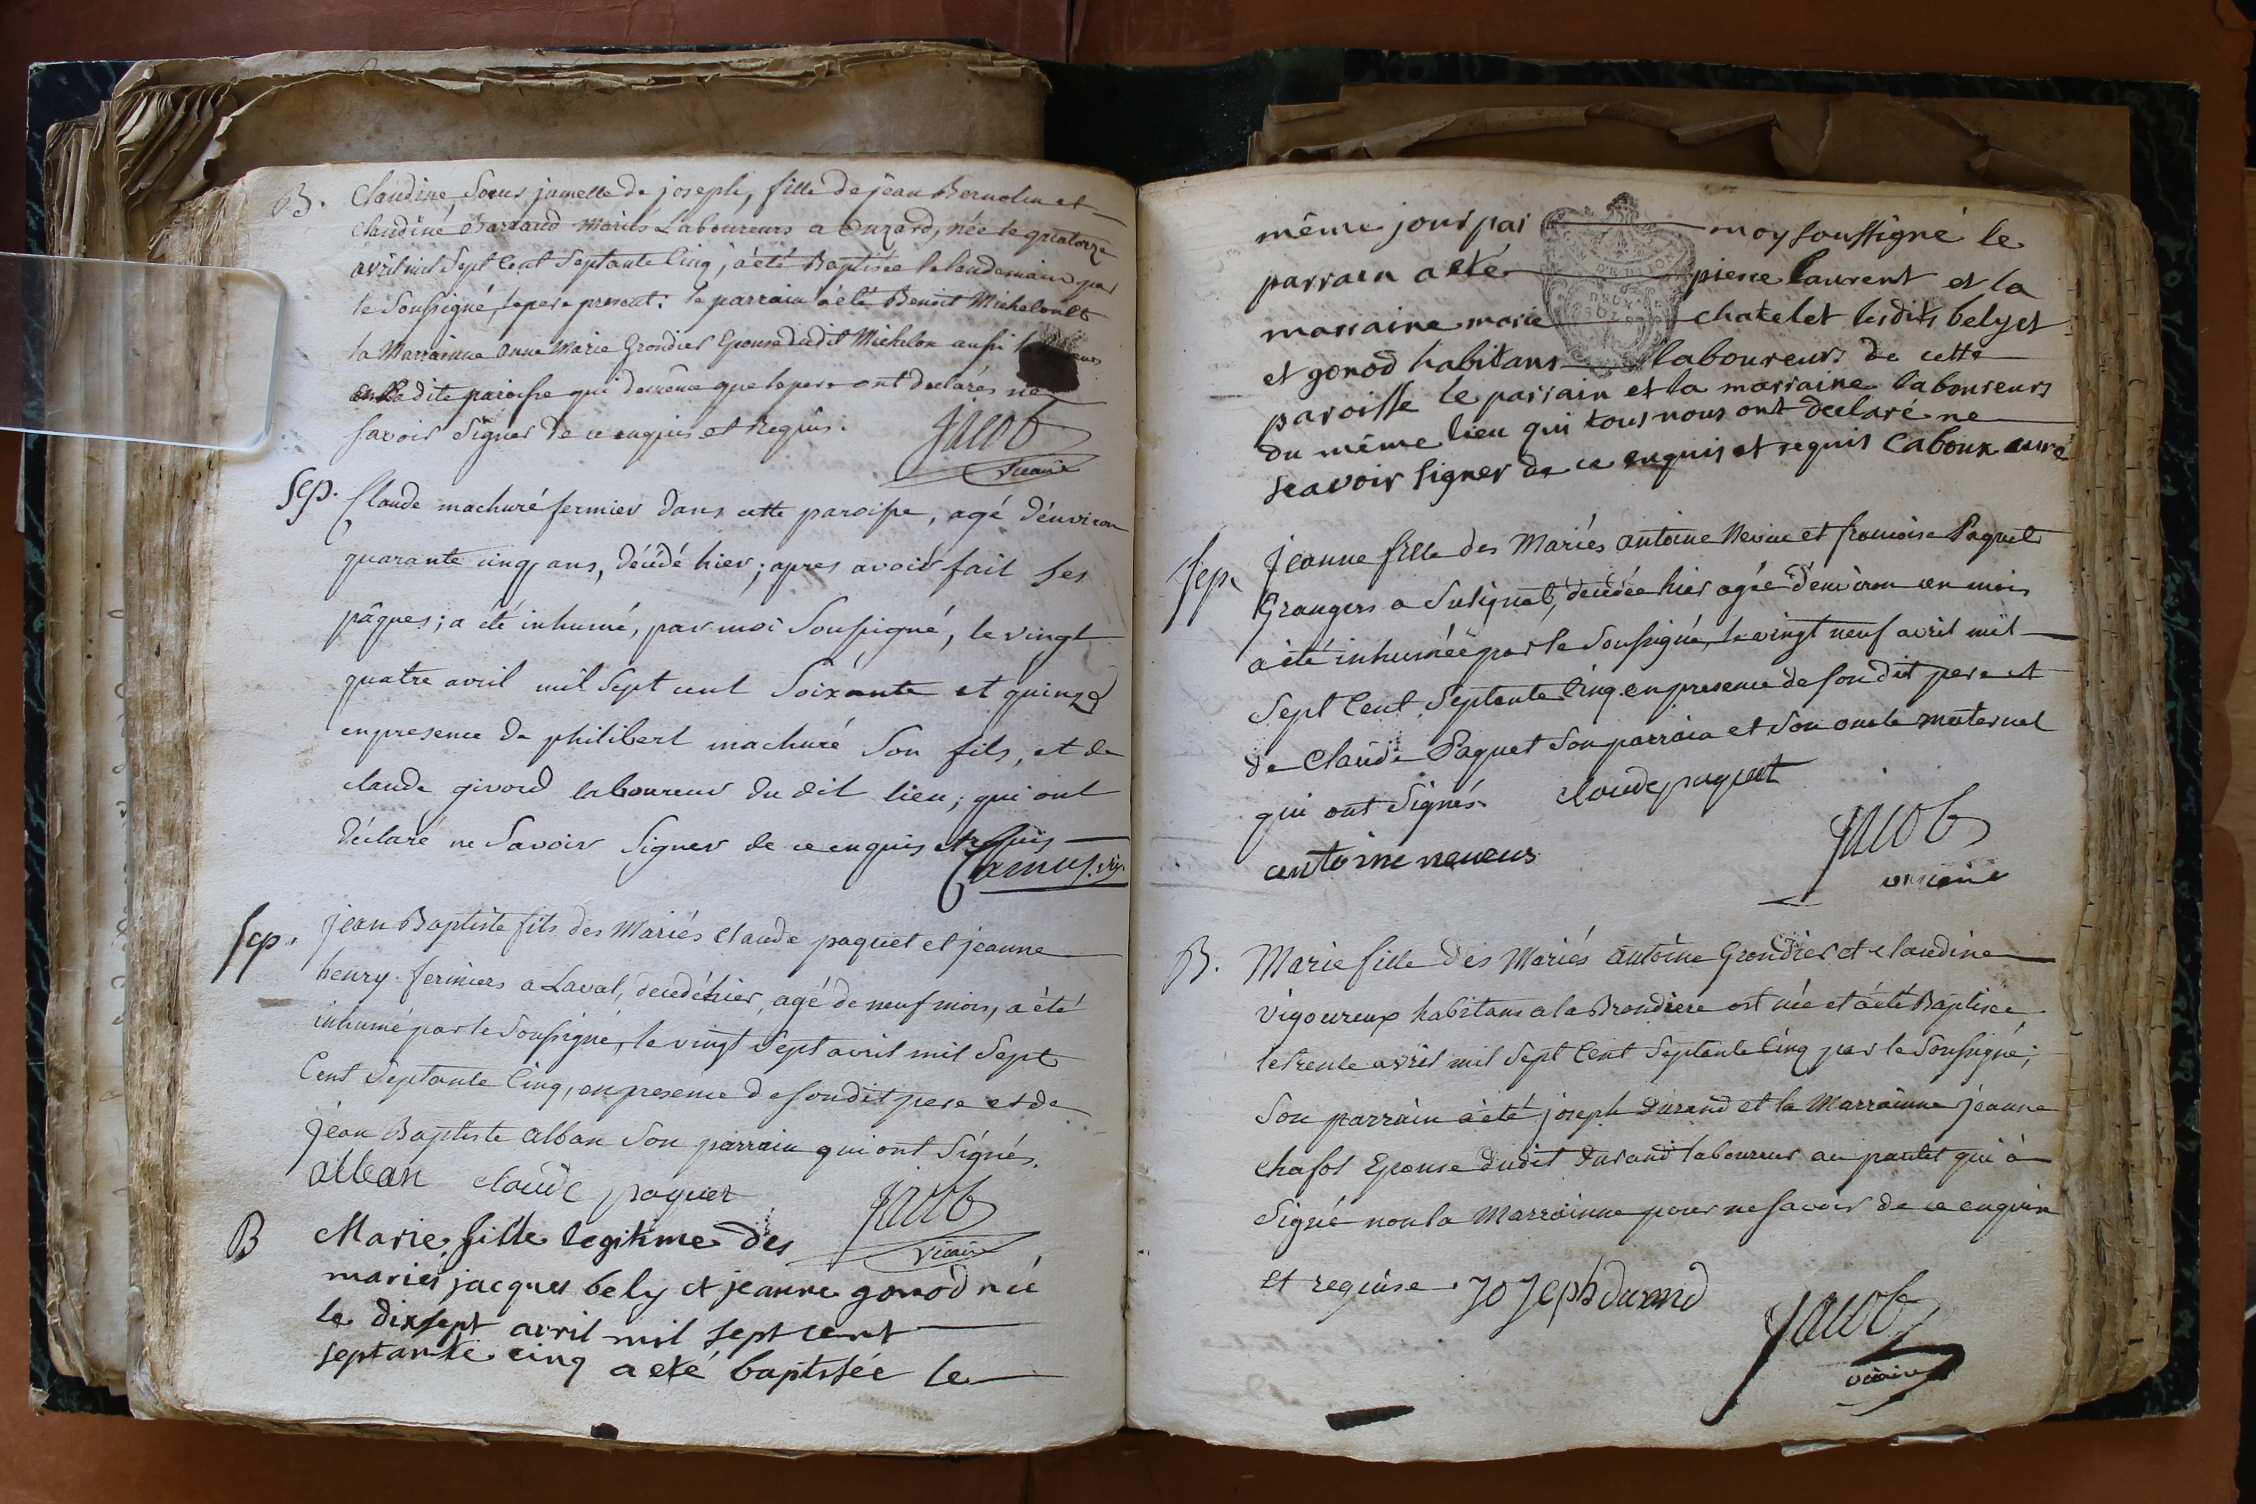 B. Claudine Soeur jumelle de joseph, fille de jean Bernolin et
Claudine Barraud Mariés Laboureurs a Ouzard, née le quatorze
avril mil Sept Cent Septante Cinq, à été Baptisée le lendemain par
le Soussigné, le pere present: le parrain à été Benoit Michelon et
la Marrainne Anne Marie Grondier Epouse dudit Michelon aussi
en la dite paroisse qui de même que le pere ont declarés ne
savoir Signer de ce enquis et Requis. Jacob
vicaire
Sep. Claude machuré fermier dans cette paroisse, agé d'environ
quarante cinq ans, décédé hier; apres avoir fait ses
pâques; a été inhumé, par moi Soussigné, le vingt
quatre avril mil Sept cent Soixante et quinze
en presence de philibert machuré Son fils, et de
claude givord laboureur du dit lieu; qui ont
déclaré ne Savoir Signer de ce enquis et requis
Camus. vic.
Sep. jean Baptiste fils des Mariés claude paquet et jeanne
henry fermiers a Laval, decédé hier, agé de neuf mois, a été
inhumé par le Soussigné, le vingt Sept avril mil Sept
Cent Septante Cinq, en presence de son dit pere et de
Jean Baptiste alban Son parrain qui ont Signés.
alban claude paquet Jacob
vicaire
B Marie fille legitime des
mariés jacques bely et jeanne gonod née
le dixsept avril mil sept cent
septante cinq a eté baptisée le
même jour par moy soussigné le
parrain a eté pierre laurent et la
marraine marie chatelet lesdits bely et
et gonod habitans laboureurs de cette
paroisse le parrain et la marraine laboureurs
du même lieu qui tous nous ont declaré ne
scavoir signer de ce enquis et requis Caboux curé
Sep. Jeanne fille des Mariés antoine Neveu et francoise Paquet
Grangers a Sulignat, decédée hier agée d'environ un mois
a été inhumée par le Soussigné, le vingt neuf avril mil
Sept Cent Septante Cinq en presence de son dit pere et
de Claude Paquet Son parrain et Son oncle maternel
qui ont Signés. claude paquet
antoine neveus Jacob
vicaire
B. Marie fille des Mariés antoine Grondier et claudine
Vigoureux habitans a la Brondiere est née et à été Baptisée
le trente avril mil Sept Cent Septante Cinq par le Soussigné;
Son parrain à été joseph Durand et la Marrainne jeanne
chafol Epouse dudit Durand laboureur au pautet qui à
Signé non la Marrainne pour ne savoir de ce enquise
et requise. Joseph durand Jacob
vicaire